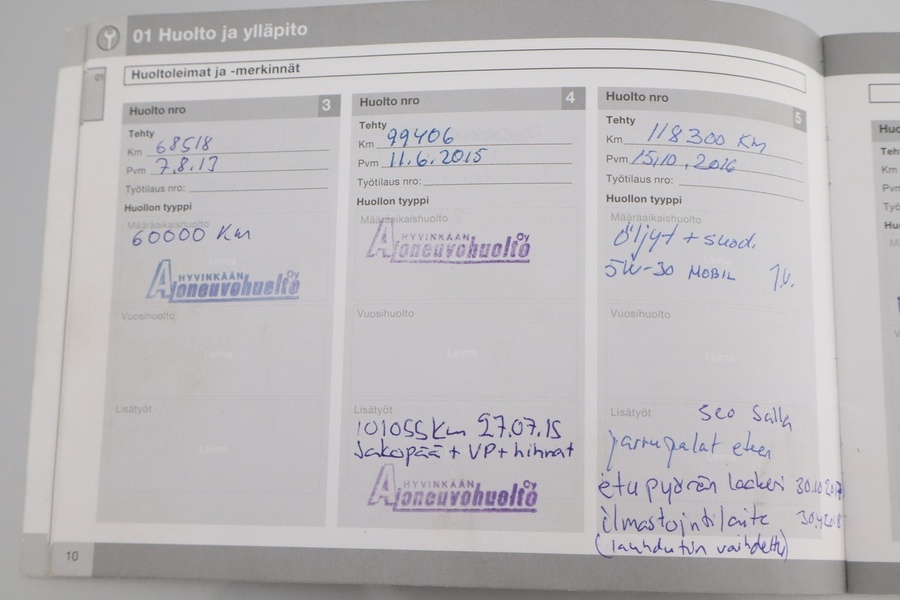 01 Huolto ja ylläpito
01
Huoltoleimat ja -merkinnät
Huolto nro 3
Tehty
Km 68518
Pvm 7.8.13
Työtilaus nro:
Huollon tyyppi
Määräaikaishuolto
60000 Km
Leima
HYVINKÄÄN Oy
Ajoneuvohuolto
Vuosihuolto
Leima
Lisätyöt
Leima
Huolto nro 4
Tehty
Km 99406
Pvm 11.6.2015
Työtilaus nro:
Huollon tyyppi
Määräaikaishuolto
HYVINKÄÄN Oy
Ajoneuvohuolto
Vuosihuolto
Leima
Lisätyöt
101055 km 27.07.15
Jakopää + VP + hihnat
HYVINKÄÄN Oy
Ajoneuvohuolto
Huolto nro 5
Tehty
Km 118300 KM
Pvm 15.10.2016
Työtilaus nro:
Huollon tyyppi
Määräaikaishuolto
Öljyt + suod.
Leima
5W-30 MOBIL
Vuosihuolto
Leima
Lisätyöt
Seo Salla
jarrupalat eteen
etupyörän laakeri
ilmastointilaite
(lauhdutin vaihdettu)
10
Huo
Teh
Km
Pvm
Työ
Huo
Mää